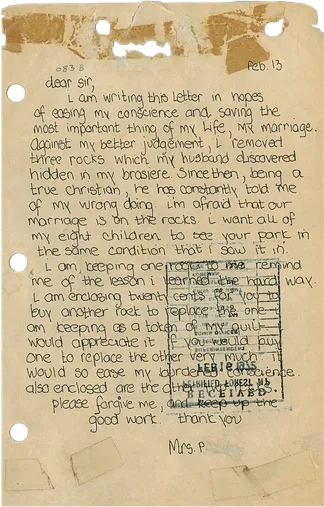 083 B
Feb. 13
dear sir,
I am writing this letter in hopes
of easing my conscience and saving the
most important thing of my life, my marriage.
Against my better judgement, I removed
three rocks which my husband discovered
hidden in my brasiere. Since then, being a
true christian, he has constantly told me
of my wrong doing. i'm afraid that our
marriage is on the rocks. I want all of
my eight children to see your park in
the same condition that i saw it in.
I am keeping one rock to remind
me of the lesson i learned the hard way.
I am enclosing twenty cents for you to
buy another rock to replace the one I
am keeping as a token of my guilt. I
would appreciate it if you would buy
one to replace the other very much it
would so ease my burdened conscience.
also enclosed are the other
please forgive me, and keep up the
good work. thank you
Mrs. P
FEB 18
PETRIFIED FOREST
RECEIVED